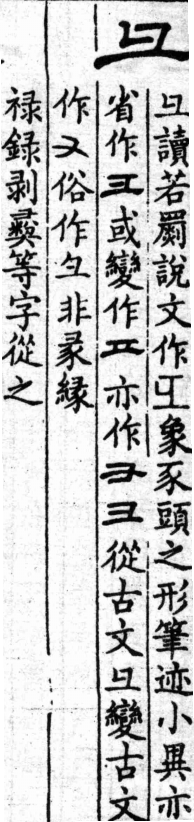 彑
彑讀若罽說文作彑象豕頭之形筆迹小異亦
省作彐或變作工亦作彐彐從古文彑變古文
作又俗作彑非彖緣
祿錄剥彝等字從之